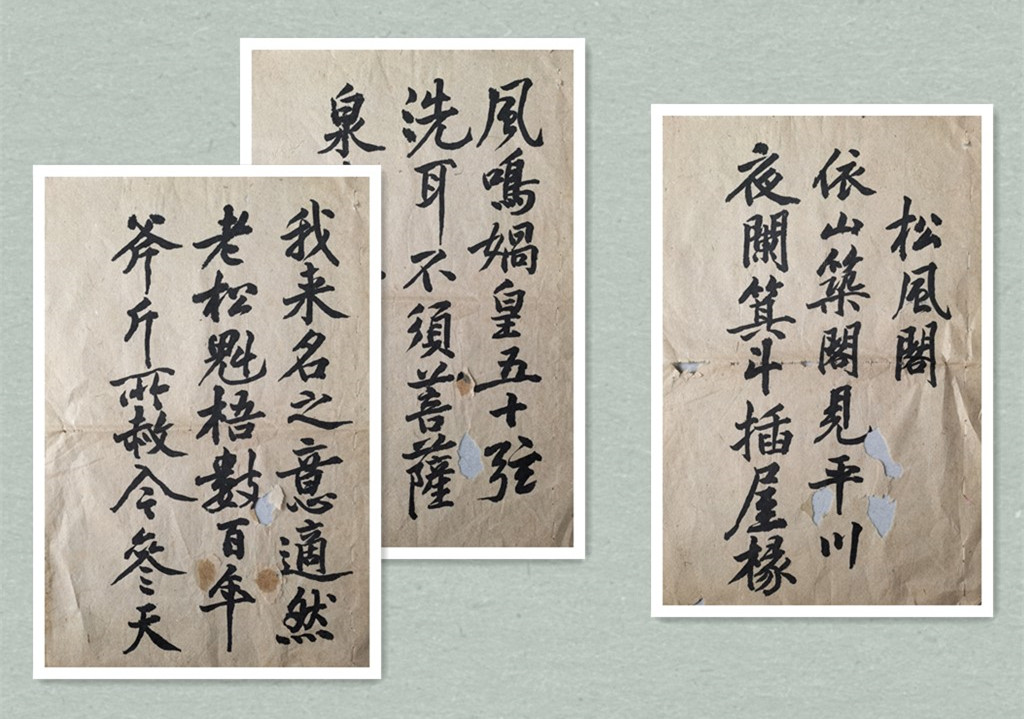 松風閣
依山築閣見平川
夜闌箕斗插屋椽
我来名之意適然
老松魁梧數百年
斧斤所赦令參天
風鳴媧皇五十弦
洗耳不須菩薩
泉